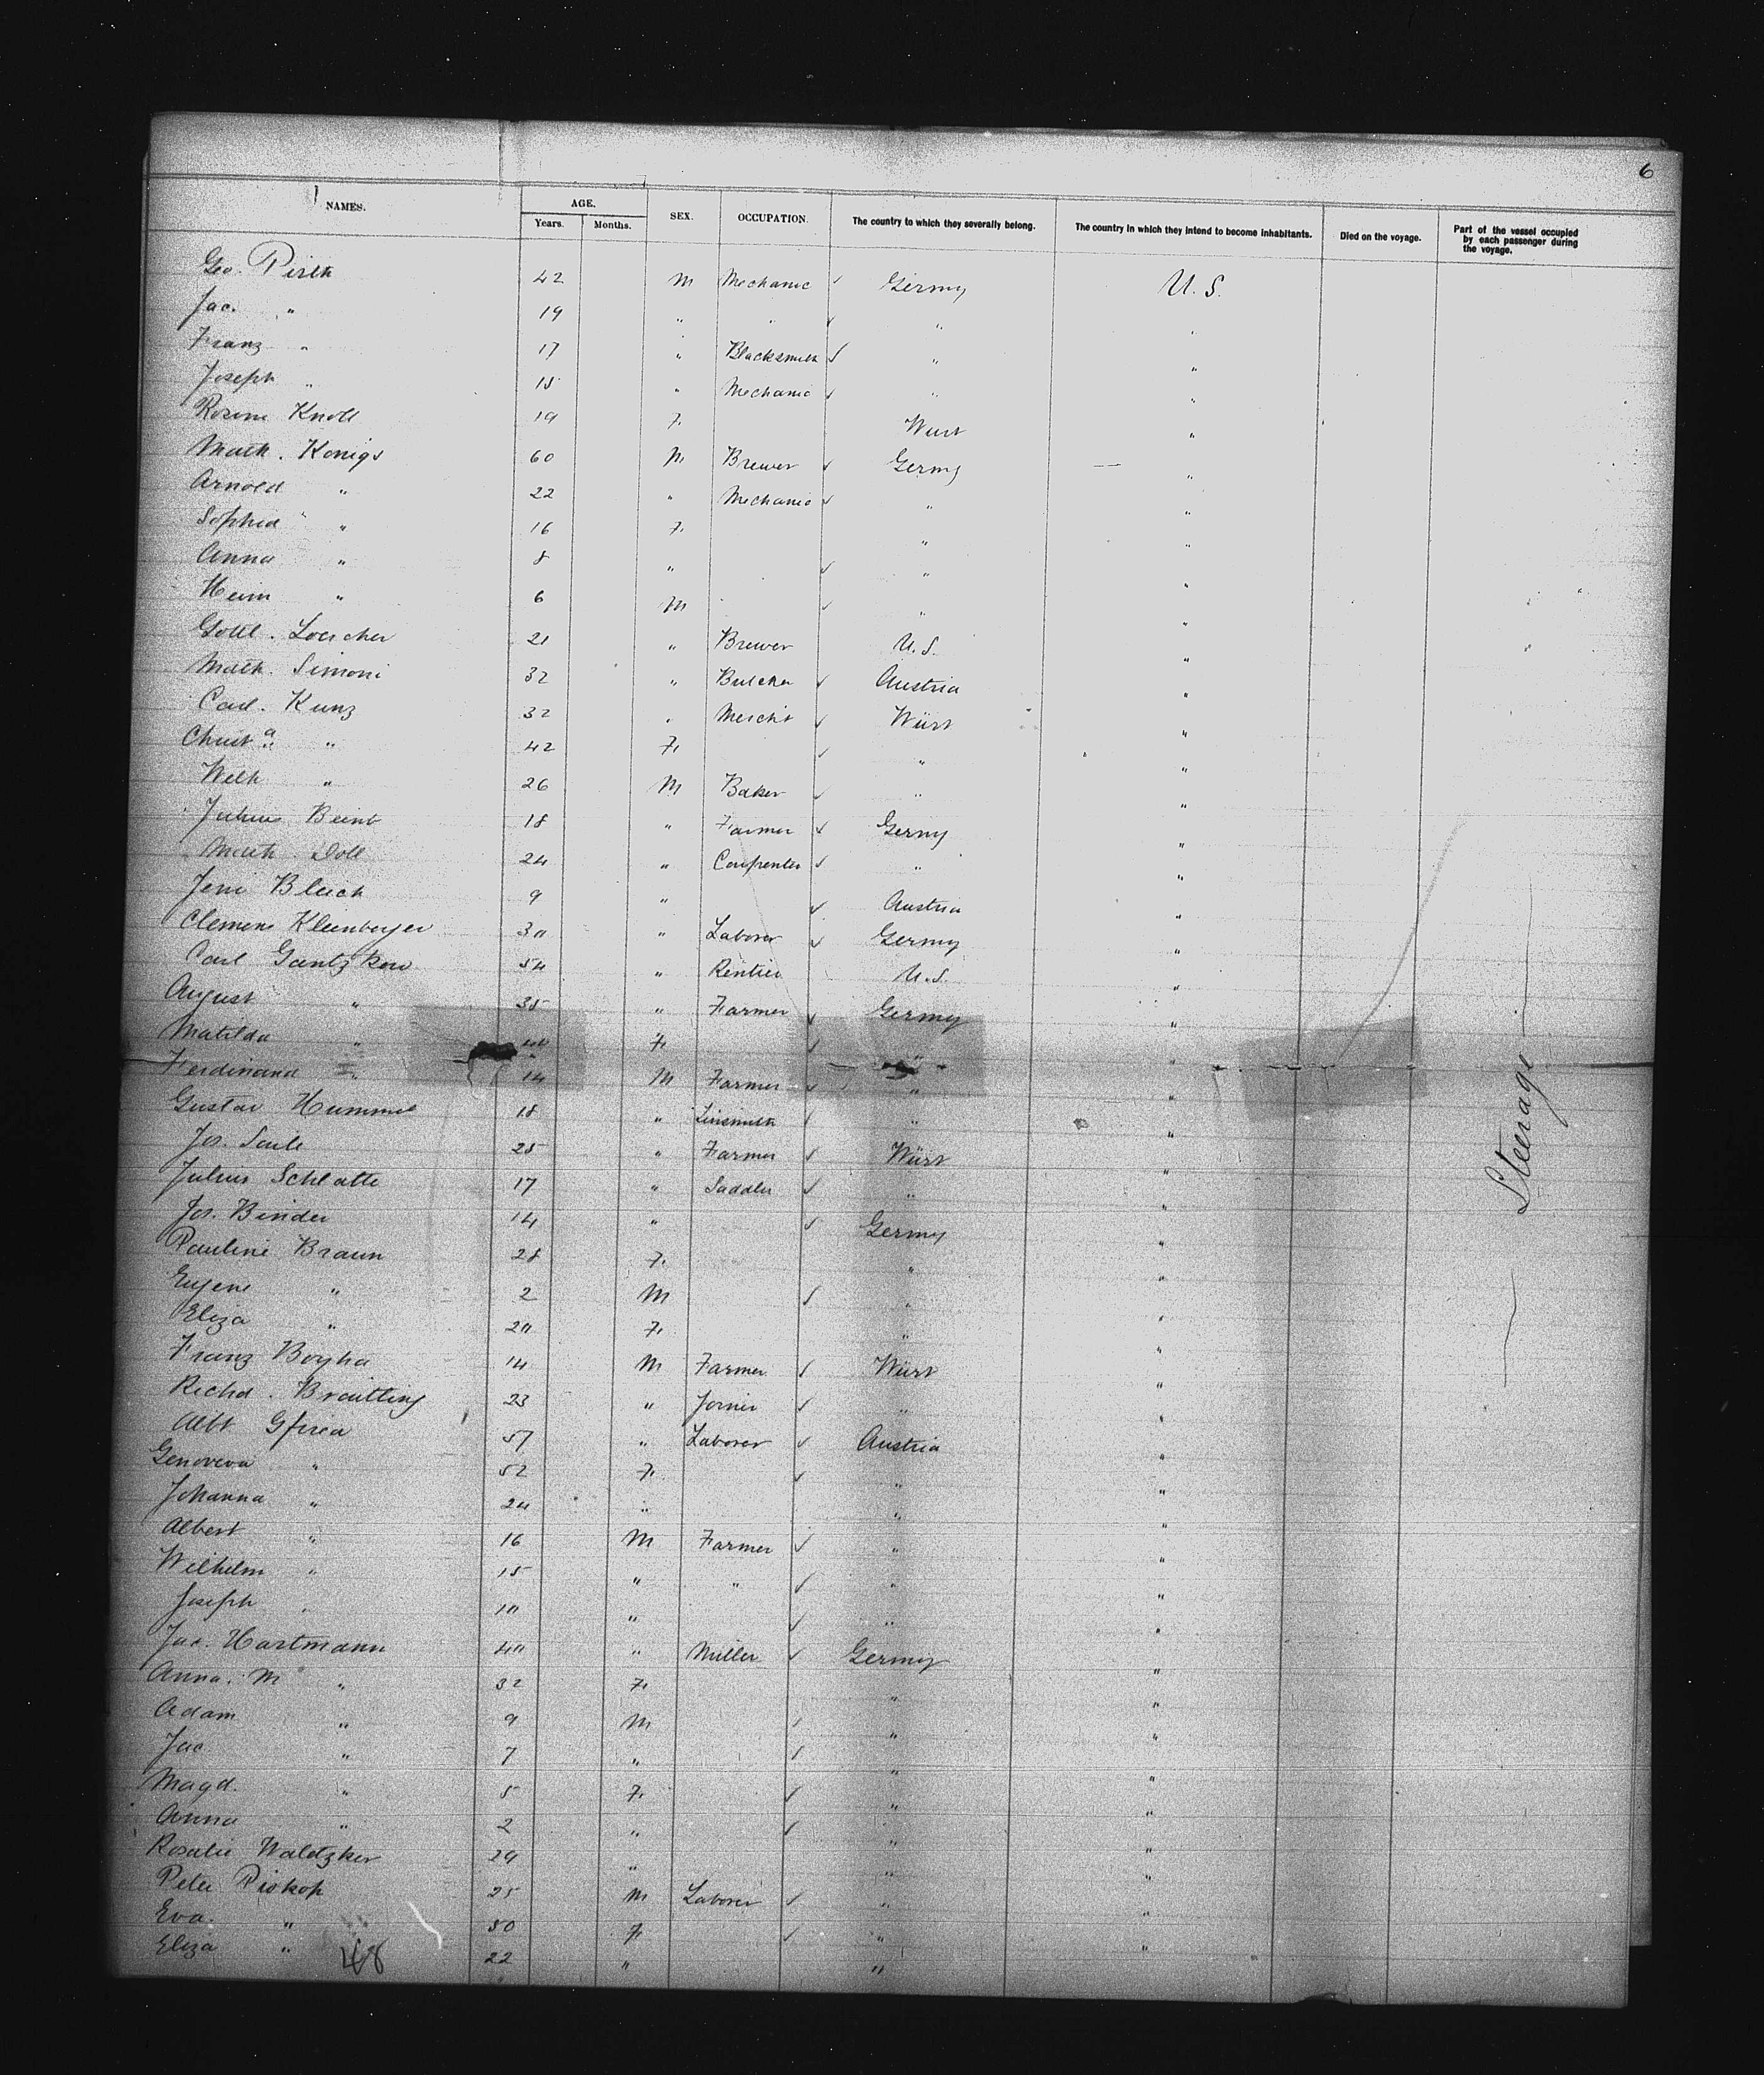 6
NAMES. AGE. SEX. OCCUPATION. The country to which they severally belong. The country in which they intend to become inhabitants. Died on the voyage. Part of the vessel occupied by each passenger during the voyage.
Years. Months.
Geo. 42 M Mechanic ✓ Germy U. S.
Jac. " 19 " " ✓ " "
Franz " 17 " Blacksmith ✓ " "
Joseph " 15 " Mechanic ✓ " "
Rosine Knoll 19 F. Wurt "
Math. Konigs 60 M Brewer ✓ Germy — "
Arnold " 22 " Mechanic ✓ " "
Sophia " 16 F. " "
Anna " 8 " ✓ " "
Heinr " 6 M ✓ " "
Gottl. Loercher 21 " Brewer U. S. "
Math. Simoni 32 " Butcher ✓ Austria "
Carl. Kunz 32 " Merch't ✓ Würt "
Christ a " 42 F. ✓ " "
Wilh " 26 M Baker ✓ " "
Julius 18 " Farmer ✓ Germy "
Math. Doll 24 " Carpenter ✓ " "
Jeni Bleich 9 " ✓ Austria "
Clemens Kleinberger 30 " Laborer ✓ Germy "
Carl Gantzkow 54 " Rentier U. S. "
August " 35 " Farmer ✓ Germy "
Matilda " F. ✓ " "
Ferdinand " 14 M Farmer ✓ " "
Gustav Hummel 18 " Tinsmith ✓ " "
Jos. Saile 25 " Farmer ✓ Würt "
Julius Schlatte 17 " Saddler ✓ " "
Jos. Binder 14 " ✓ Germy "
Pauline Braun 28 F. " "
Eugene " 2 M ✓ " "
Eliza " 20 F. " "
Franz 14 M Farmer ✓ Würt "
Richd. Braitting 23 " Joiner ✓ " "
Albt 57 " Laborer ✓ Austria "
Genoveva " 52 F. ✓ " "
Johanna " 24 " " "
Albert " 16 M Farmer ✓ " "
Wilhelm " 15 " " ✓ " "
Joseph " 10 " ✓ " "
Jac. Hartmann 40 " Miller ✓ Germy "
Anna. M " 32 F. " "
Adam " 9 M ✓ " "
Jac " 7 " ✓ " "
Magd. " 5 F. ✓ " "
Anna " 2 " ✓ " "
Rosalie Waletzker 29 " " "
Peter Prokop 25 M Laborer ✓ " "
Eva. " 50 F. ✓ " "
Eliza " 22 " "
48
Steerage